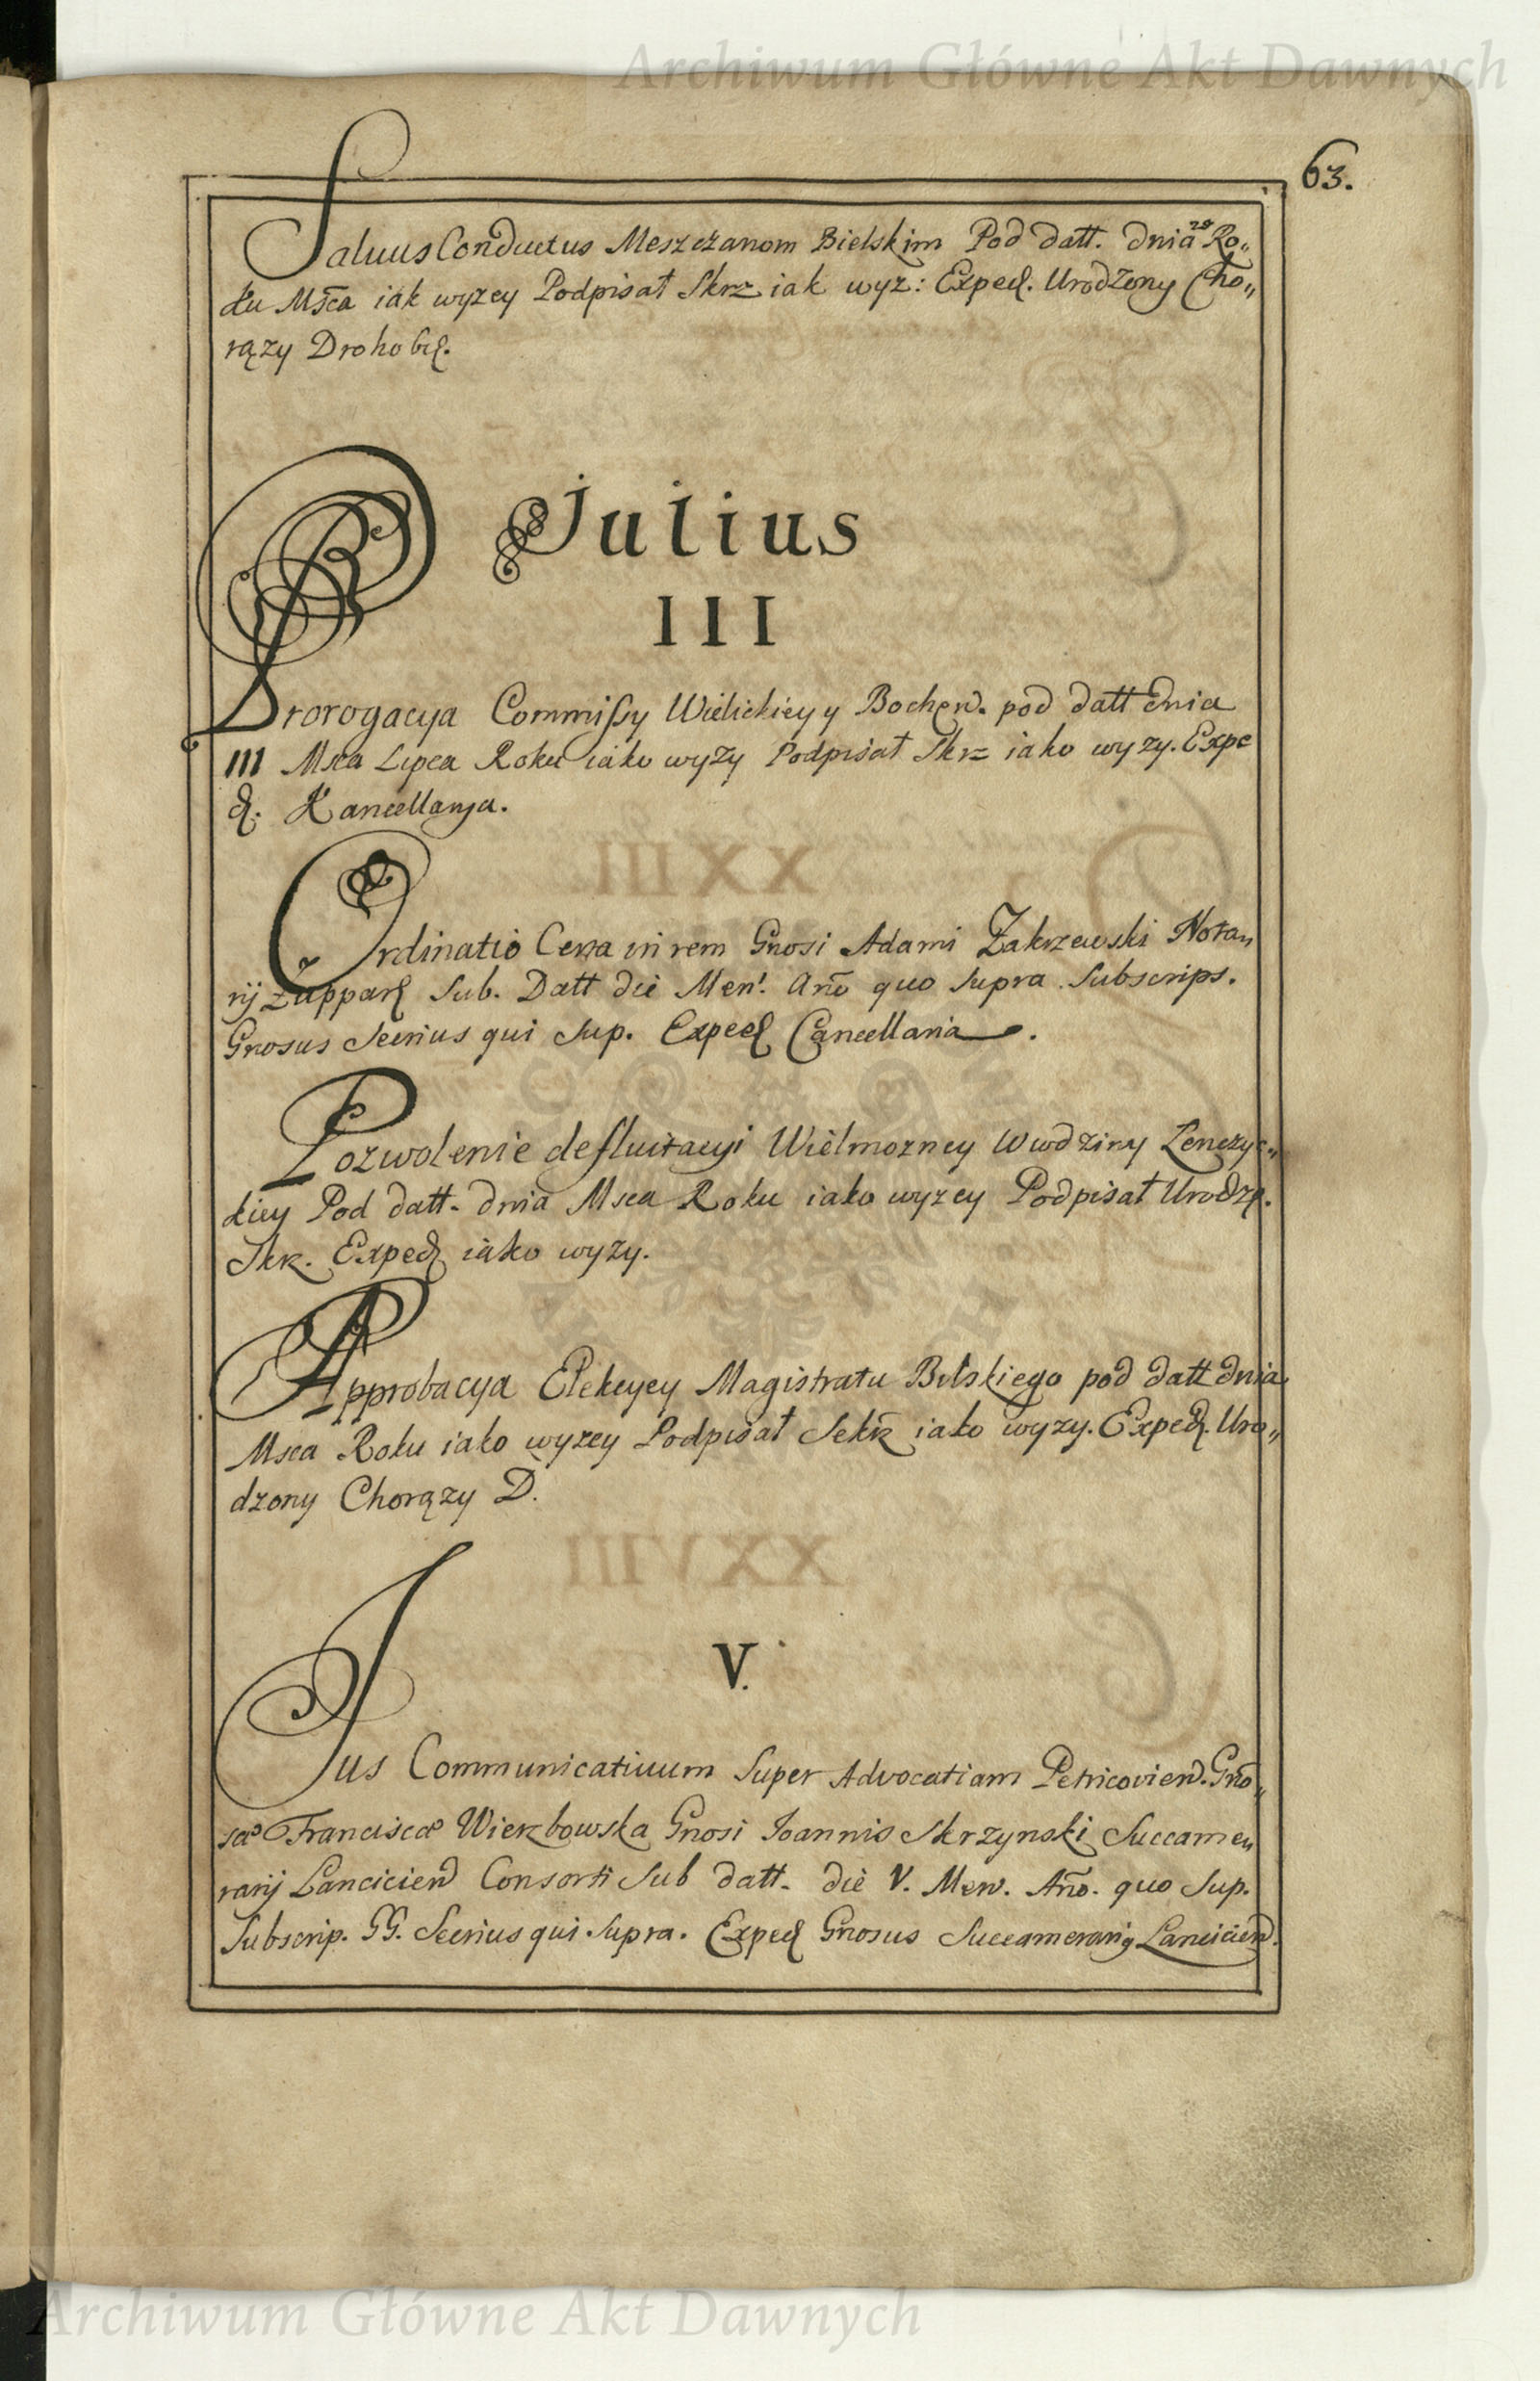 Archiwum Główne Akt Dawnych
63.
Saluus Conductus Meszczanom Bielskim Pod datt. dnia 28 Ro„
ku Msca iak wyzey Podpisał Skrz iak wyz: Exped. Urodzony Cho„
rązy Drohobic.
Julius
III
Prorogacya Commissy Wielickiey y Bochen. pod datt dnia
III Msca Lipca Roku iako wyzy Podpisał Skrz iako wyzy. Expe
d. Kancellarya.
Ordinatio Certa in rem Gnosi Adami Zakrzewski Nota„
rij Zuppar Sub. Datt die Men. Ano quo Supra Subscrips.
Gnosus Secrius qui Sup. Exped Cancellaria.
Pozwolenie defluitacyi Wielmozney Wwodziny Lenczyc„
kiey Pod datt. dnia Msca Roku iako wyzey Podpisał Urodz.
Skr. Exped iako wyzy.
Approbacya Elekcyey Magistratu Belskiego pod datt dnia
Msca Roku iako wyzey Podpisał Sekr iako wyzy. Exped. Uro„
dzony Chorązy D.
V.
Jus Communicatiuum Super Advocatiam Petricovien. Gno„
sæ Franciscæ Wierzbowska Gnosi Joannis Skrzynski Succame„
rarij Lancicien Consorti Sub datt. die V. Men. Ano. quo Sup.
Subscrip. GG. Secrius qui Supra. Exped Gnosus Succamerarig Lancicien.
Archiwum Główne Akt Dawnych